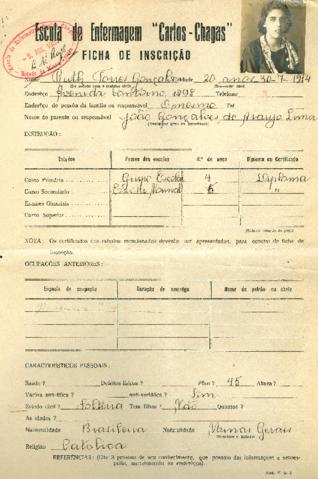 Escola de Enfermagem "Carlos-Chagas"
FICHA DE INSCRIÇÃO
Nome Ruth Torres Gonçalves Idade 20 anos 30-7-1914
Endereço Avenida Contorno 1898
Endereço de pessoa da familia ou responsavel O mesmo Tel
Nome do parente ou responsavel João Gonçalves de Araujo Lima
INSTRUÇÃO:
Estudos Nomes das escolas N.º de anos Diploma ou Certificado
Curso Primário Grupo Escolar 4 Diploma
Curso Secundário Escola Normal 5 "
Exames Ginasiais
Curso Superior
NOTA: Os certificados dos estudos mencionados deverão ser apresentados, para
inscrição.
OCUPAÇÕES ANTERIORES:
Especie de ocupação Duração do emprego Nome do patrão ou chefe
CARACTERISTICOS PESSOAIS:
Saude? Defeitos fisicos? Peso? 45 Altura?
Vacina anti-variolica? anti-tifica? Sim
Estado civil? Solteira Tem filhos? Não Quantos?
As idades?
Nacionalidade Brasileira Naturalidade Minas Gerais
Religião Catolica
REFERÊNCIAS: